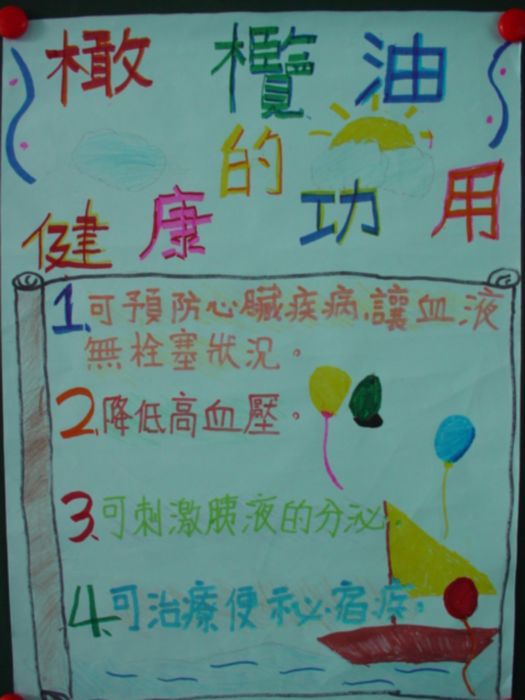 橄欖油
的
健康功用
1.可預防心臟疾病,讓血液
無栓塞狀況。
2.降低高血壓。
3.可刺激胰液的分泌。
4.可治療便祕宿疾。